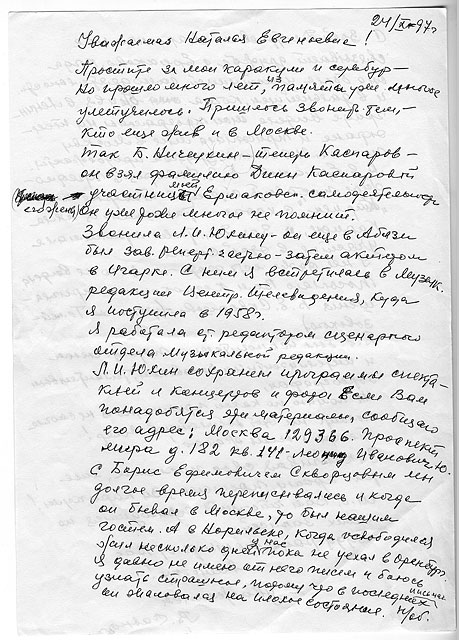 24/IX-97г
Уважаемая Наталия Евгеньевна!
Простите за мои каракули и сумбур-
Но прошло много лет, из памяти уже многое
улетучилось. Пришлось звонить тем,-
кто еще жив и в Москве.
Так Б. Ничеухин - теперь Каспаров -
он взял фамилию Дины Каспаровой
участницы Ермаковск. самодеятельности
его жена Он уже тоже многое не помнит.
Звонила Л.И. Юхину - он еще в Абези
был зав. реперт. частью - затем актером
в Игарке. С ним я встретилась в Музык.
редакции Центр. Телевидения, куда
я поступила в 1958г.
Я работала ст. редактором сценарного
отдела Музыкальной редакции.
Л.И. Юхин сохранил программы спекта-
клей и концертов и фото. Если Вам
понадобятся эти материалы, сообщаю
его адрес: Москва 129366. Проспект
мира д. 182 кв. 141 - Леонид Иванович Ю.
С Борис Ефимовичем Скворцовым мы
долгое время переписывались и когда
он бывал в Москве, то был нашим
гостем. А в Норильске, когда освободился
жил несколько дней у нас пока не уехал в Оренбург.
Я давно не имею от него писем и боюсь
узнать страшное, потому что в последних письмах
он жаловался на плохое состояние. н/об.